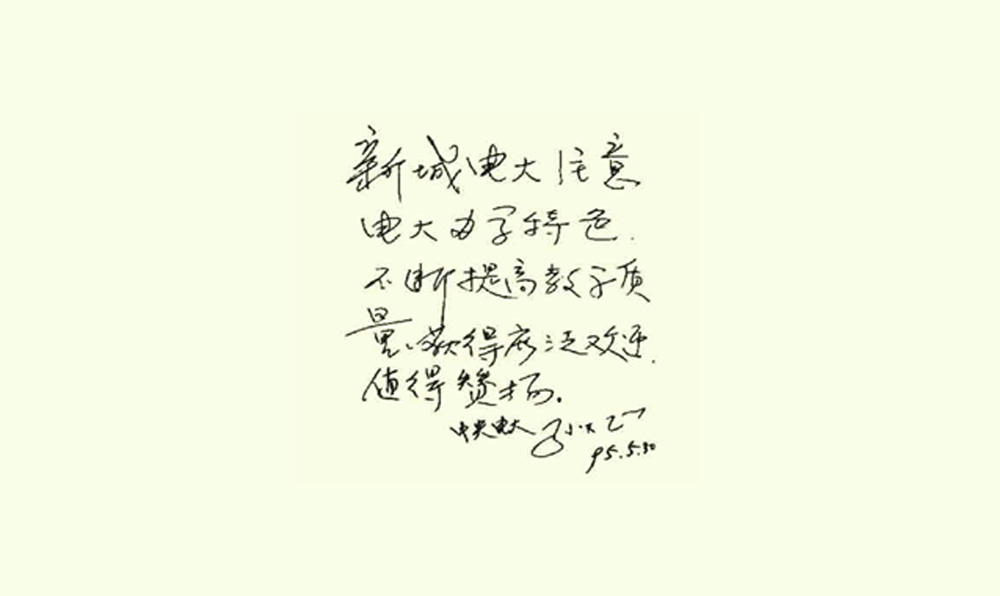 新城电大注意
电大办学特色.
不断提高教学质
量、获得广泛欢迎.
值得赞扬.
中央电大
95.5.30